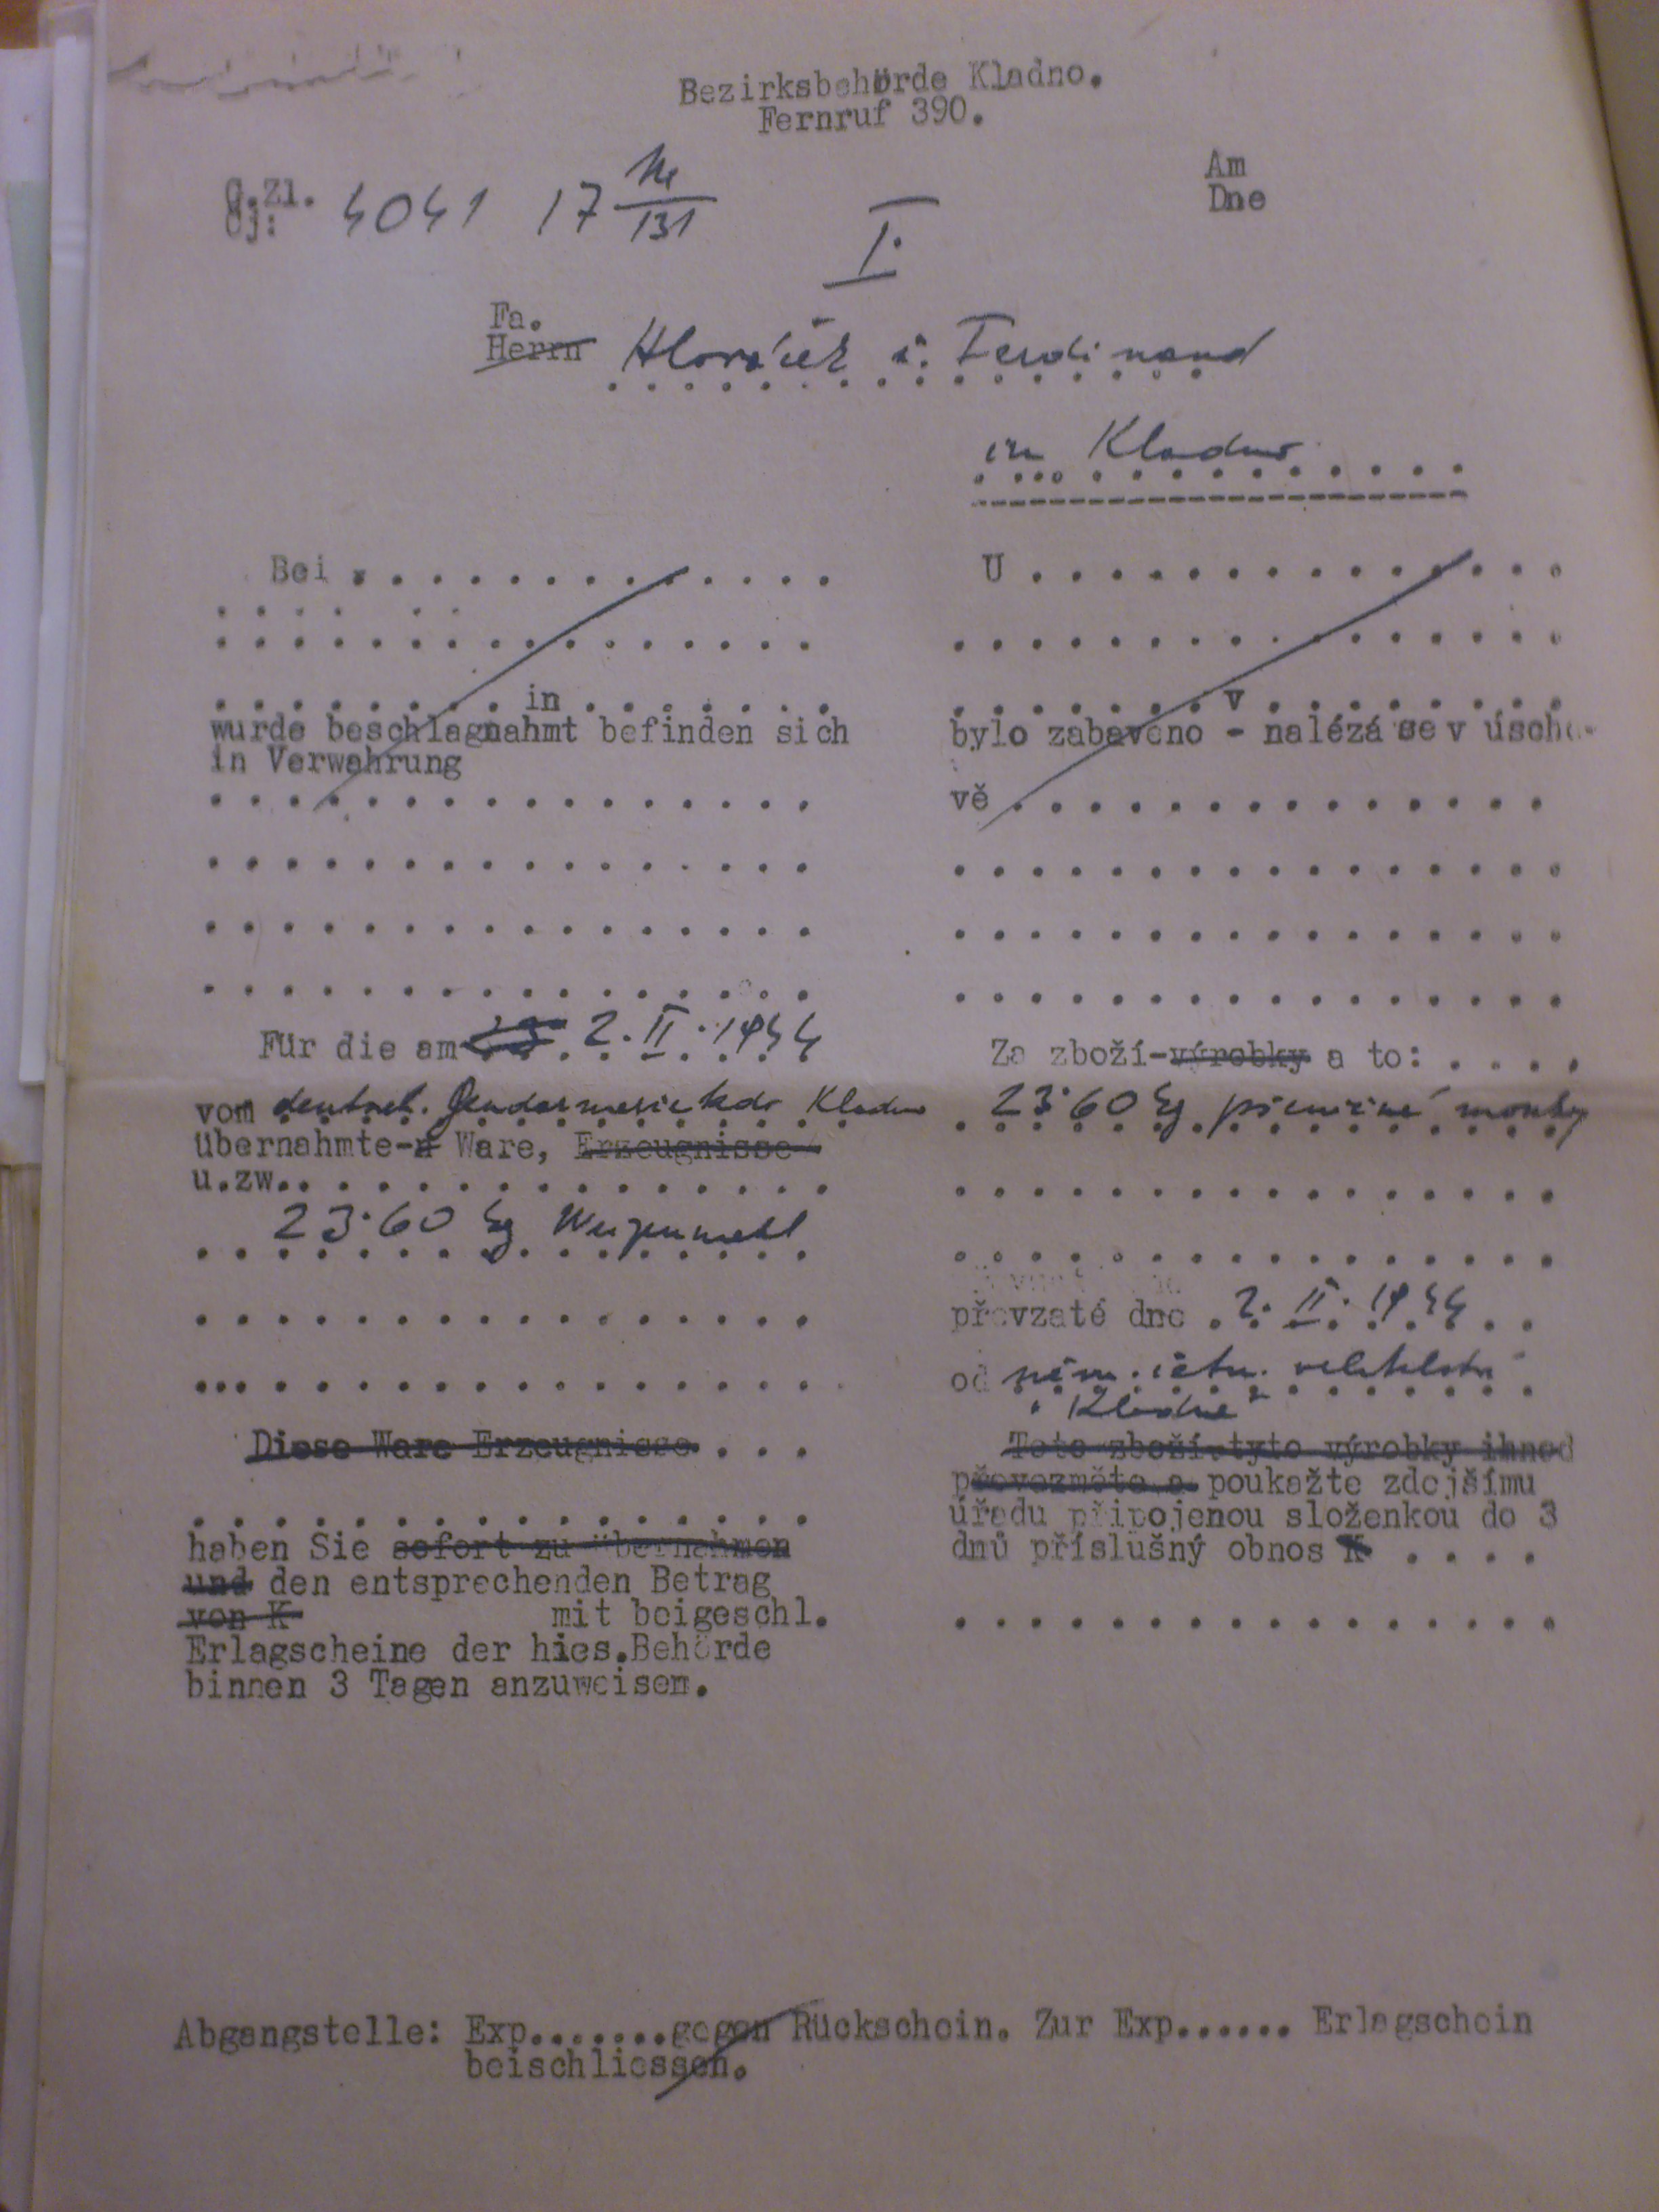 Bezirksbehörde Kladno.
Fernruf 390.
G.Zl. Am
Čj: 4041 17 131 Dne
I.
Fa.
Herrn Ferdinand
in Kladno
Bei . . . . . . . . . . . . .
. . . . . . . . . . . . . . . .
. . . . . . . . in . . . . . . .
wurde beschlagnahmt befinden sich
in Verwahrung
. . . . . . . . . . . . . . . .
Für die am 2. II. 1944
vom deutsch. Gendarmeriekdo Kladno
übernahmte-n Ware, Erzeugnisse
u.zw. . . . . . . . . . . . . . .
23·60 kg Weizenmehl
. . . . . . . . . . . . . . . .
Diese Ware Erzeugnisse . . .
. . . . . . . . . . . . . . . .
haben Sie sofort zu übernahmen
und den entsprechenden Betrag
von K mit beigeschl.
Erlagscheine der hies.Behörde
binnen 3 Tagen anzuweisen.
U . . . . . . . . . . . . . .
. . . . . . . . . . . . . . . .
. . . . . . . v . . . . . . . .
bylo zabaveno - nalézá se v úscho-
vě . . . . . . . . . . . . . .
. . . . . . . . . . . . . . . .
Za zboží-výrobky a to: . . . .
23·60 kg pšeničné mouky
. . . . . . . . . . . . . . . .
převzaté dne 2. II. 1944 . .
od něm. četn. velitelství
v Kladně
Toto zboží-tyto výrobky ihned
převezměte a poukažte zdejšímu
úřadu připojenou složenkou do 3
dnů příslušný obnos K . . . .
. . . . . . . . . . . . . . . .
Abgangstelle: Exp.......gegen Rückschein. Zur Exp...... Erlagschein
beischliessen.